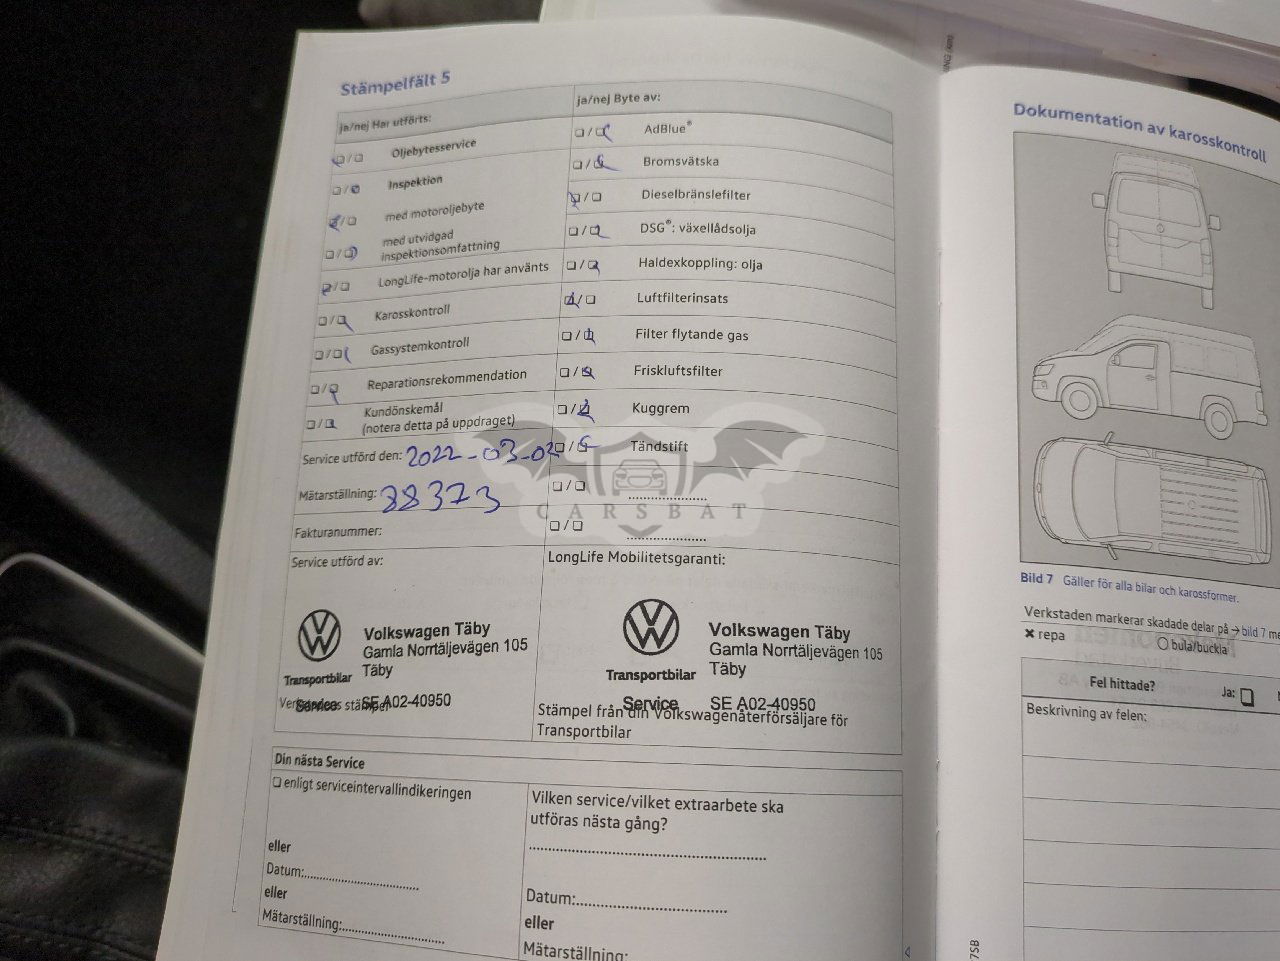 Stämpelfält 5
ja/nej Har utförts:
❏/❏ Oljebytesservice
❏/❏ Inspektion
❏/❏ med motoroljebyte
❏/❏ med utvidgad
inspektionsomfattning
❏/❏ LongLife-motorolja har använts
❏/❏ Karosskontroll
❏/❏ Gassystemkontroll
❏/❏ Reparationsrekommendation
❏/❏ Kundönskemål
(notera detta på uppdraget)
Service utförd den: 2022-03-02
Mätarställning: 38373
Fakturanummer:
Service utförd av:
Volkswagen Täby
Gamla Norrtäljevägen 105
Täby
Transportbilar
Service SE A02-40950
ja/nej Byte av:
❏/❏ AdBlue®
❏/❏ Bromsvätska
❏/❏ Dieselbränslefilter
❏/❏ DSG®: växellådsolja
❏/❏ Haldexkoppling: olja
❏/❏ Luftfilterinsats
❏/❏ Filter flytande gas
❏/❏ Friskluftsfilter
❏/❏ Kuggrem
❏/❏ Tändstift
❏/❏ ......................
❏/❏ ......................
CARSBAT
LongLife Mobilitetsgaranti:
Volkswagen Täby
Gamla Norrtäljevägen 105
Täby
Transportbilar
Service SE A02-40950
Stämpel från din Volkswagenåterförsäljare för
Transportbilar
Din nästa Service
❏ enligt serviceintervallindikeringen
eller
Datum:................................
eller
Mätarställning:............................
Vilken service/vilket extraarbete ska
utföras nästa gång?
..............................................................
Datum:.......................................
eller
Mätarställning:
Dokumentation av karosskontroll
Bild 7 Gäller för alla bilar och karossformer.
Verkstaden markerar skadade delar på → bild 7
✖ repa
○ bula/buckla
Fel hittade? Ja: ❏
Beskrivning av felen:
7SB